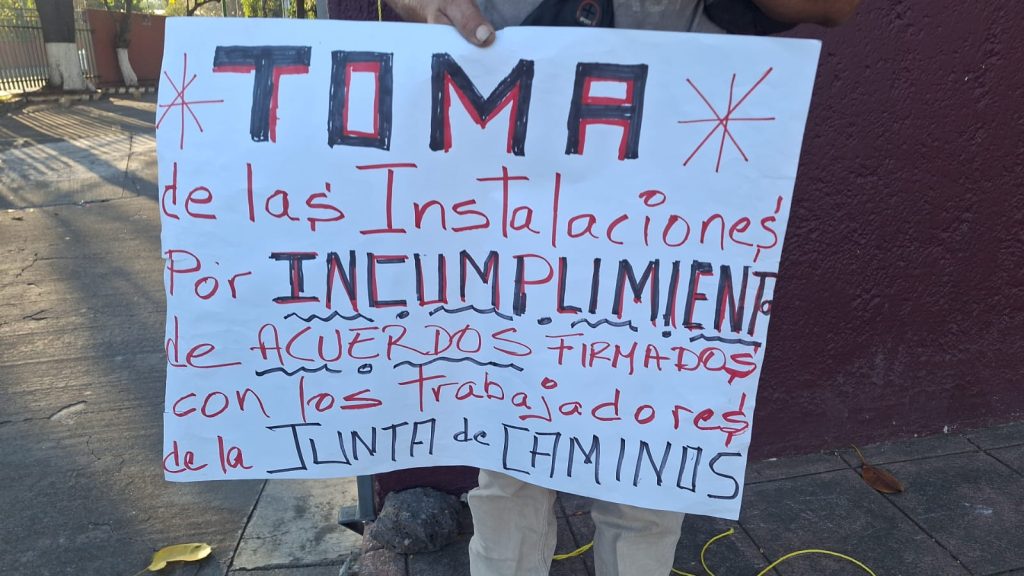 * TOMA *
de las Instalaciones
Por INCUMPLIMIENTo
de ACUERDOS FIRMADOS
con los trabajadores
de la JUNTA de CAMINOS